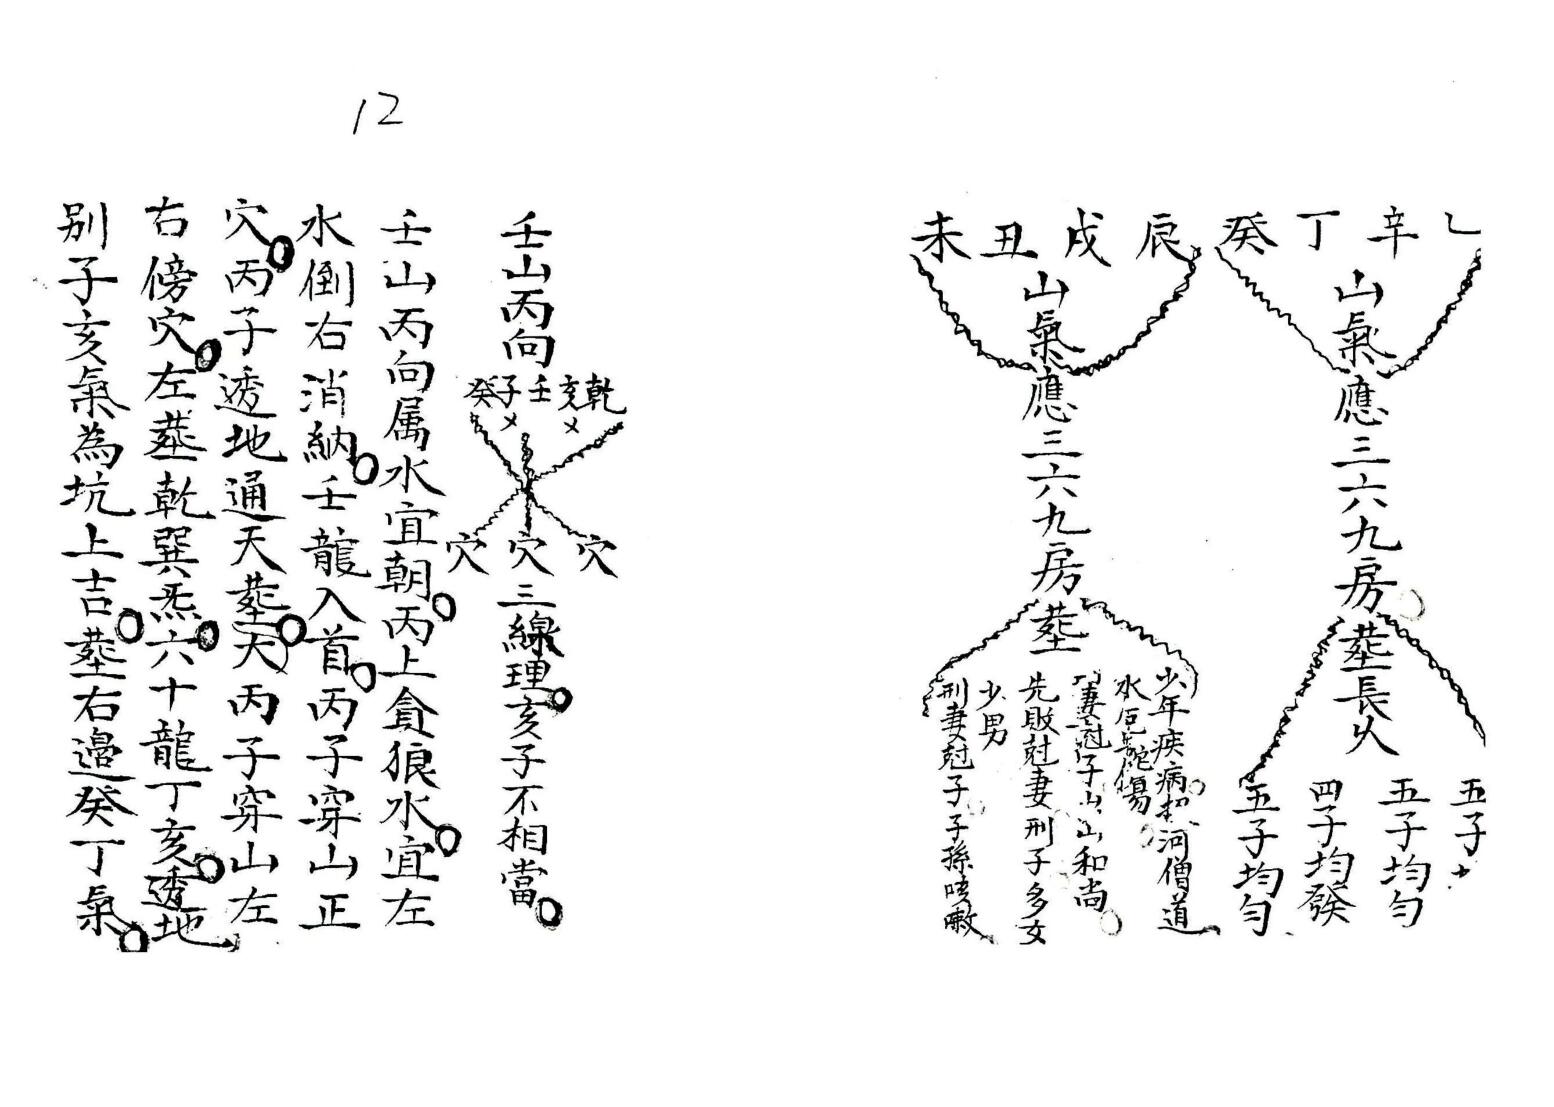 12
乙辛丁癸
山氣應三六九房塟長火
五子
五子均勻
四子均發
五子均勻
辰戌丑未
山氣應三六九房塟
少年疾病 河僧道
水厄蛇傷
妻尅子 山和尚
先敗尅妻刑子多女
少男
刑妻尅子子孫咳嗽
壬山丙向
乾亥壬子癸
穴穴穴
三線理亥子不相當
壬山丙向属水宜朝丙上貪狼水宜左
水倒右消納壬龍入首丙子穿山正
穴丙子透地通天塟大丙子穿山左
右傍穴左塟乾巽炁六十龍丁亥透地
别子亥氣為坑上吉塟右邉癸丁氣